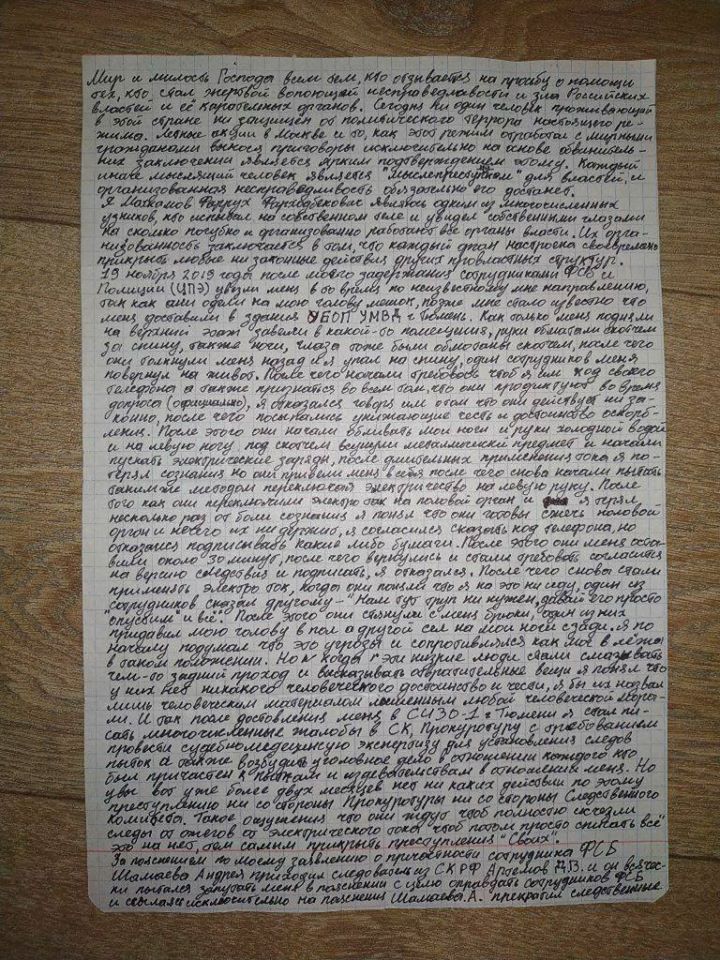 Мир и милость Господа всем тем, кто отзывается на просьбу о помощи
тех, кто стал жертвой вопиющей несправедливости и зла Российских
властей и её карательных органов. Сегодня ни один человек проживающий
в этой стране ни защищён от политического террора настоящего ре-
жима. Летние акции в Москве и то, как этот режим отработал с мирными
гражданами вынося приговоры исключительно на основе обвинитель-
ных заключении является ярким подтверждением этому. Каждый
инате мыслящий человек является "мыслепреступником" для властей, и
организованная несправедливость обязательно его достанет.
Я Маткамов Фаррух являюсь одним из многочисленных
узников, кто испытал на собственном теле и увидел собственными глазами
на сколько погибко и организованно работают все органы власти. Их орга-
низованность заключается в том, что каждый орган настроена своевременно
прикрыть любые ни законные действия других провластных структур.
19 ноября 2019 года, после моего задержания сотрудниками ФСБ и
Полиции (ЦПЭ) увезли меня в то время по неизвестному мне направлению,
так как они одели на мою голову мешок, позже мне стало известно что
меня доставили в здания УБОП УМВД г Тюмень. Как только меня подняли
на верхний этаж завели в какой-то помещения, руки обматали скотчем
за спину, также ноги, глаза тоже были обмотаны скотчем, после чего
они толкнули меня назад и я упал на спину, один сотрудников меня
повернул на живот. После чего начали требовать чтоб я им код своего
телефона а также признатся во всем том, что они продиктуют во время
допроса (официально), я отказался говоря им о том что они действует ни за-
конно, после чего посыпались унижающие честь и достоинство оскорб-
ления. После этого они начали обливать мои ноги и руки холодной водой
и на левую ногу под скотчем всунули металический предмет и начали
пускать электрические заряды, после длительных применения тока я по-
терял сознания но они привели меня в себя после чего снова начали пытать
таким же методом переключая электричество на левую руку. После
того как они переключили электро ток на половой орган и я терял,
несколько раз от боли сознания я понял что они готовы сжечь половой
орган и нечего их ни держит, я согласился сказать код телефона, но
отказался подписывать какие либо бумаги. После этого они меня оста-
вили около 30 минут, после чего вернулись и стали требовать согласится
на версию следствия и подписать, я отказался. После чего сновы стали
применять электро ток, когда они поняли что я на это ни иду, один из
сотрудников сказал другому - "Нам тут труп ни нужен, давай его просто
"опустым" и всё". После этого они стянули с меня брюки, один из них
придавил мою голову в пол а другой сел на мои ноги сзади. Я по
началу подумал что это угрозы и сопротивлялся как мог в лёжа
в таком положении. Но когда эти низкие люди стали смазывать
чем-то задний проход и высказывать отвратительные вещи я понял что
у них нет никакого человеческого достоинство и чести, я бы их назвал
лишь человеческим материалом лишенным любой человеческой мора-
ли. И так после доставления меня в СИЗО-1 г Тюмени я стал пи-
сать многочисленные жалобы в СК, Прокуратуру с требованием
провести судебно медецинсую экспертизу для установления следов
пыток а также возбудить уголовное дело в отношении каждого кто
был причастен к пыткам и издевательствам в отношении меня. Но
увы вот уже более двух месяцев нет ни каких действии по этому
преступлению ни со стороны Прокуротуры ни со стороны Следственного
комитета. Такое ощущения что они ждут чтоб полностю исчезли
следы от ожегов от электрического тока чтоб потом просто списать всё
это на нет, тем самым прикрыть преступления "Своих".
За пояснением по моему заявлению о причастности сотрудника ФСБ
Шамаева Андрея приходил следователь из СК РФ Артемов Д.В. и он всячес-
ки пытался запутать меня в пояснении с целю оправдать сотрудников ФСБ
и ссылаясь исключительно на пояснения Шамаева.А. прекратил следственные